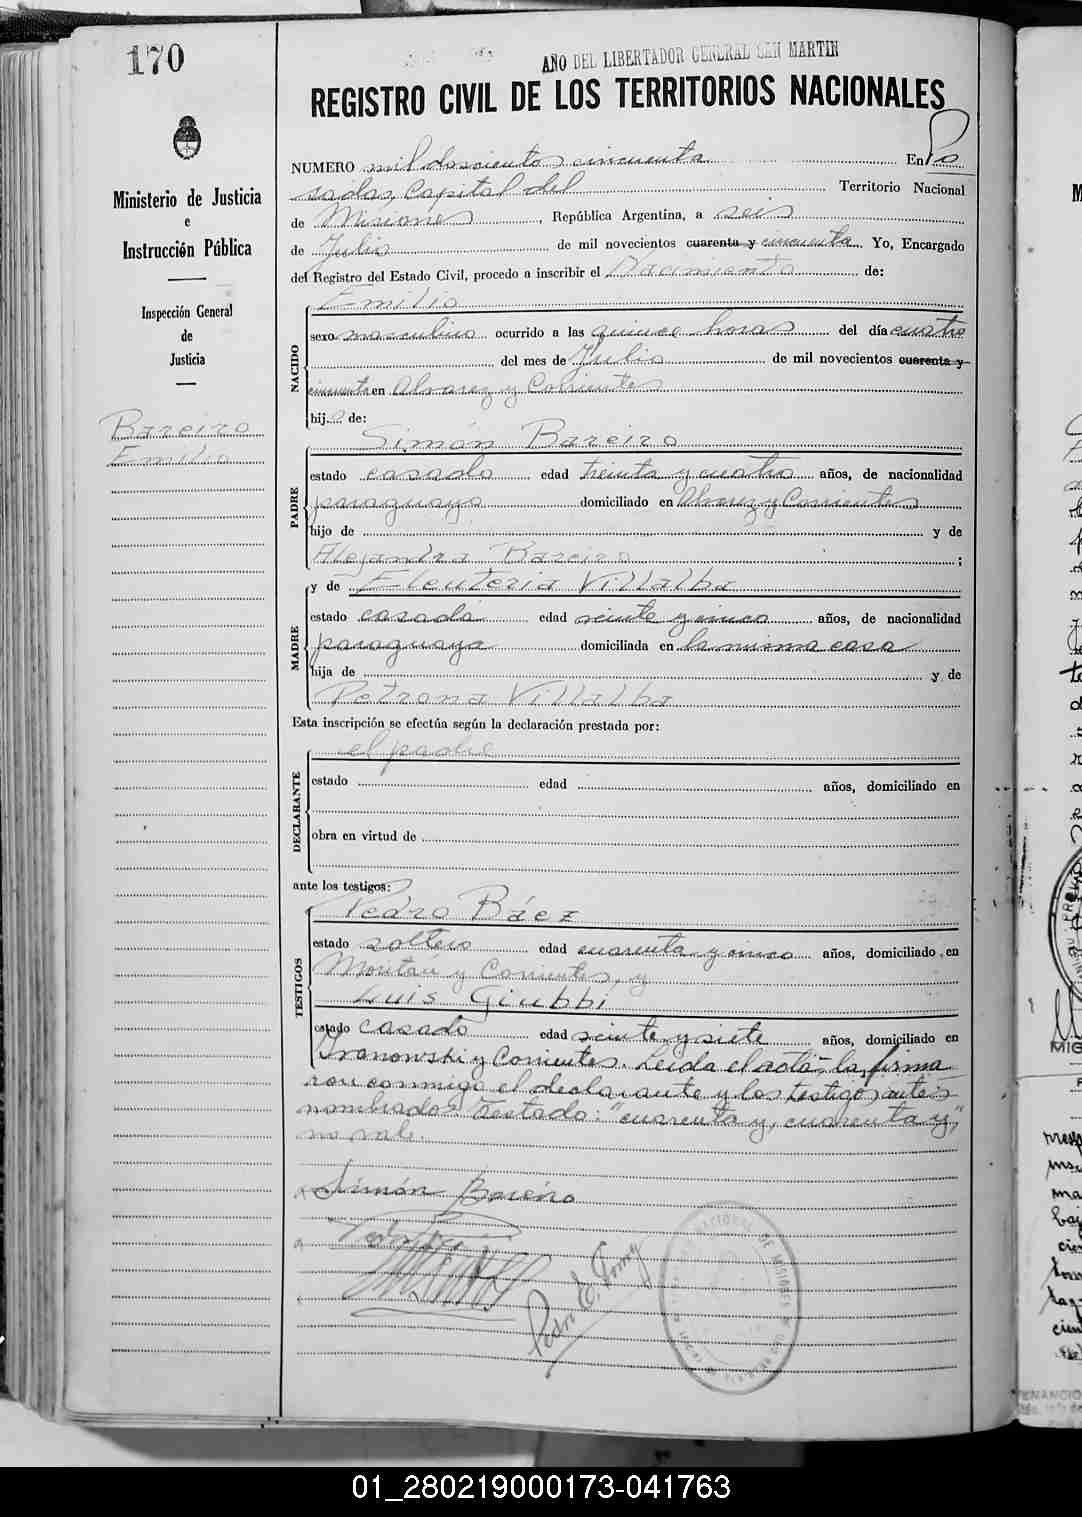 170
AÑO DEL LIBERTADOR GENERAL SAN MARTIN
REGISTRO CIVIL DE LOS TERRITORIOS NACIONALES
Ministerio de Justicia
e
Instrucción Pública
Inspección General
de
Justicia
Bareiro
Emilio
NUMERO mil doscientos cincuenta En Po
sadas, Capital del Territorio Nacional
de Misiones, República Argentina, a seis
de Julio de mil novecientos cuarenta y cincuenta. Yo, Encargado
del Registro del Estado Civil, procedo a inscribir el Nacimiento de:
Emilio
NACIDO
sexo masculino ocurrido a las quince horas del día cuatro
del mes de Julio de mil novecientos cuarenta y
cincuenta en Alvarez y Corrientes
hijo de:
Simón Bareiro
PADRE
estado casado edad treinta y cuatro años, de nacionalidad
paraguaya domiciliado en Alvarez y Corrientes
hijo de y de
Alejandra Bareiro ;
y de Eleuteria Villalba
MADRE
estado casada edad veinte y cinco años, de nacionalidad
paraguaya domiciliada en la misma casa
hija de y de
Petrona Villalba
Esta inscripción se efectúa según la declaración prestada por:
el padre
DECLARANTE
estado edad años, domiciliado en
obra en virtud de
ante los testigos:
Pedro Báez
TESTIGOS
estado soltero edad cuarenta y cinco años, domiciliado en
y Corrientes, y
Luis Giubbi
estado casado edad veinte y siete años, domiciliado en
y Corrientes. Leida el acta, la firma
ron conmigo el declarante y los testigos antes
nombrados. Testado: "cuarenta y, cuarenta y",
no vale.
Simón Bareiro
Pedro E.
NACIONAL DE MISIONES
01_280219000173-041763